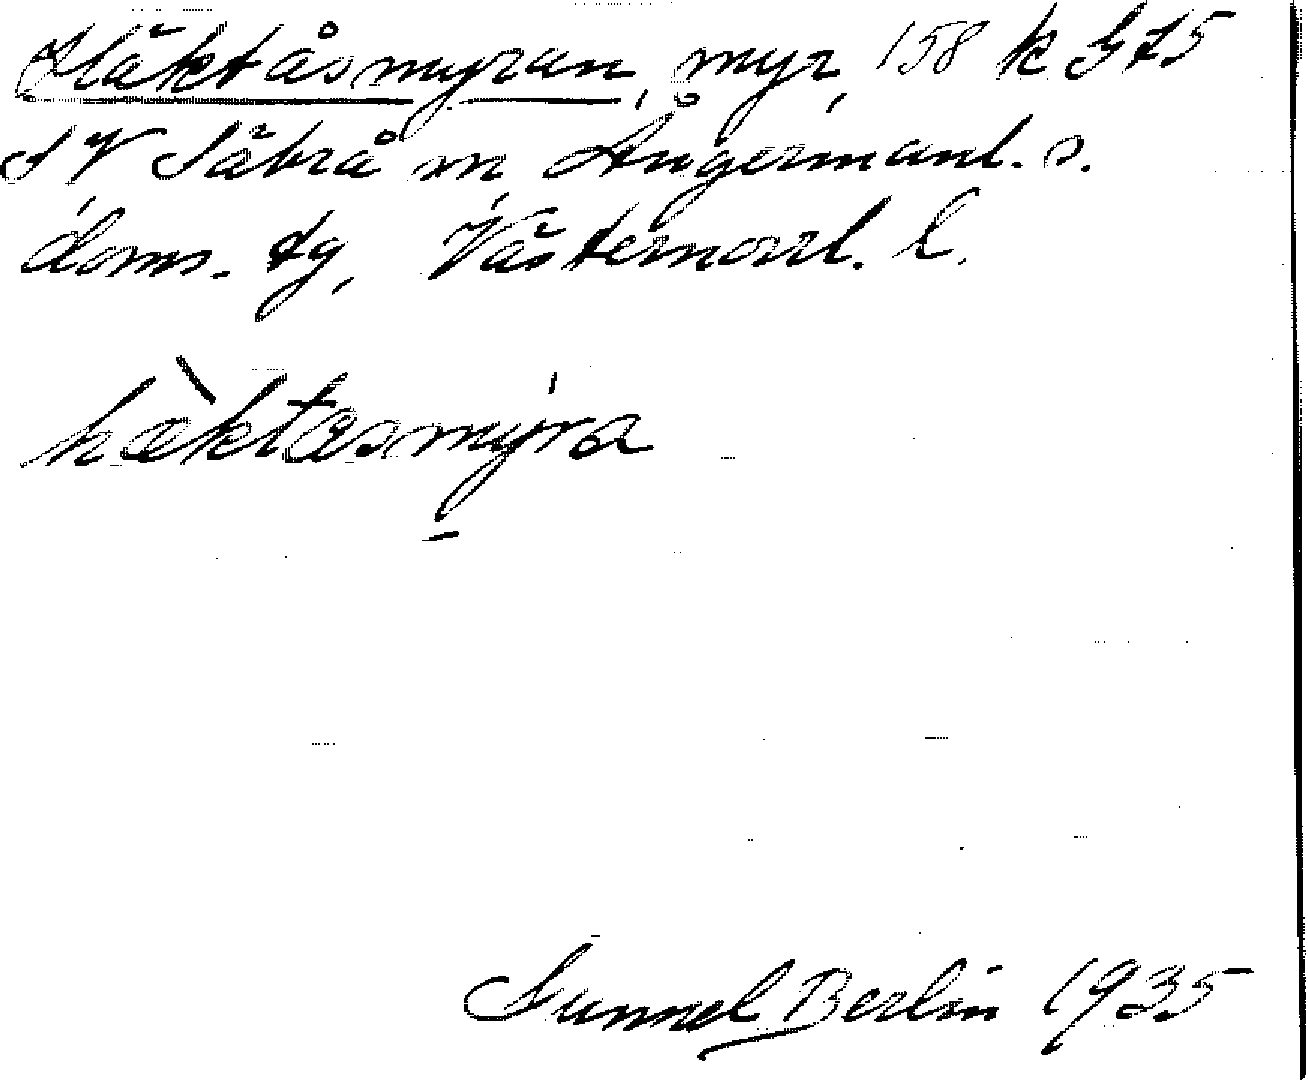 Häktåsmyran, myr, 158 k G 75
SV Säbrå sn, Ångermanl. s.
doms. tg, Västernorrl. l.
hæ̀ktåsmy̱ra
Gunnel Berlin 1935